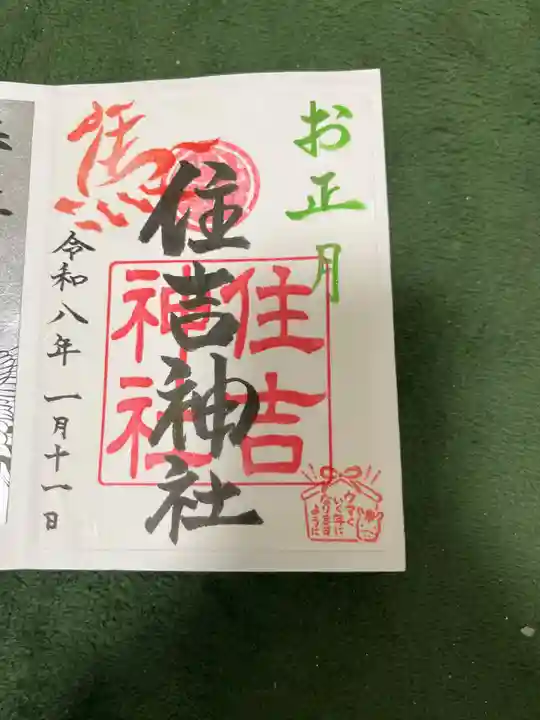 お正月
馬
住吉神社
住吉
神社
令和八年 一月十一日
ウマく
いく年に
なります
ように